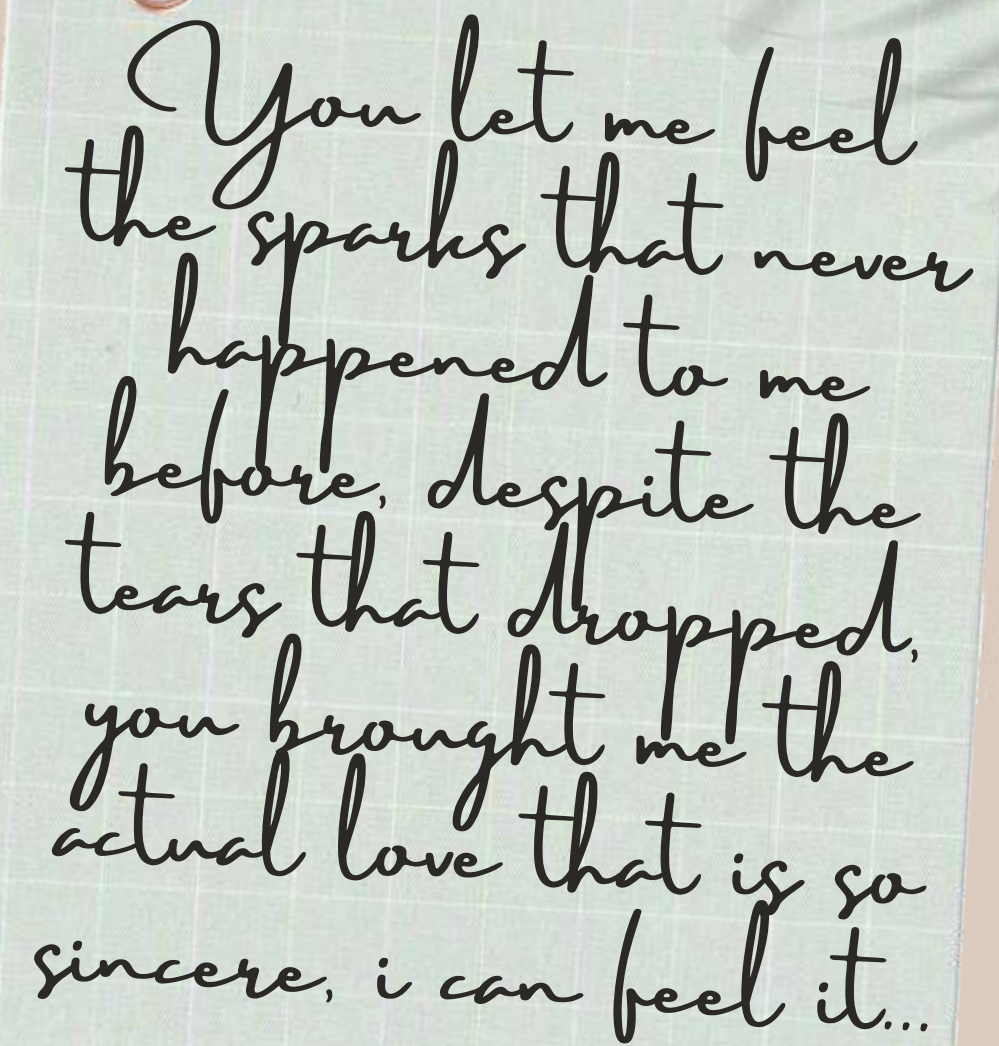 You let me feel
the sparks that never
happened to me
before, despite the
tears that dropped,
you brought me the
actual love that is so
sincere, i can feel it...